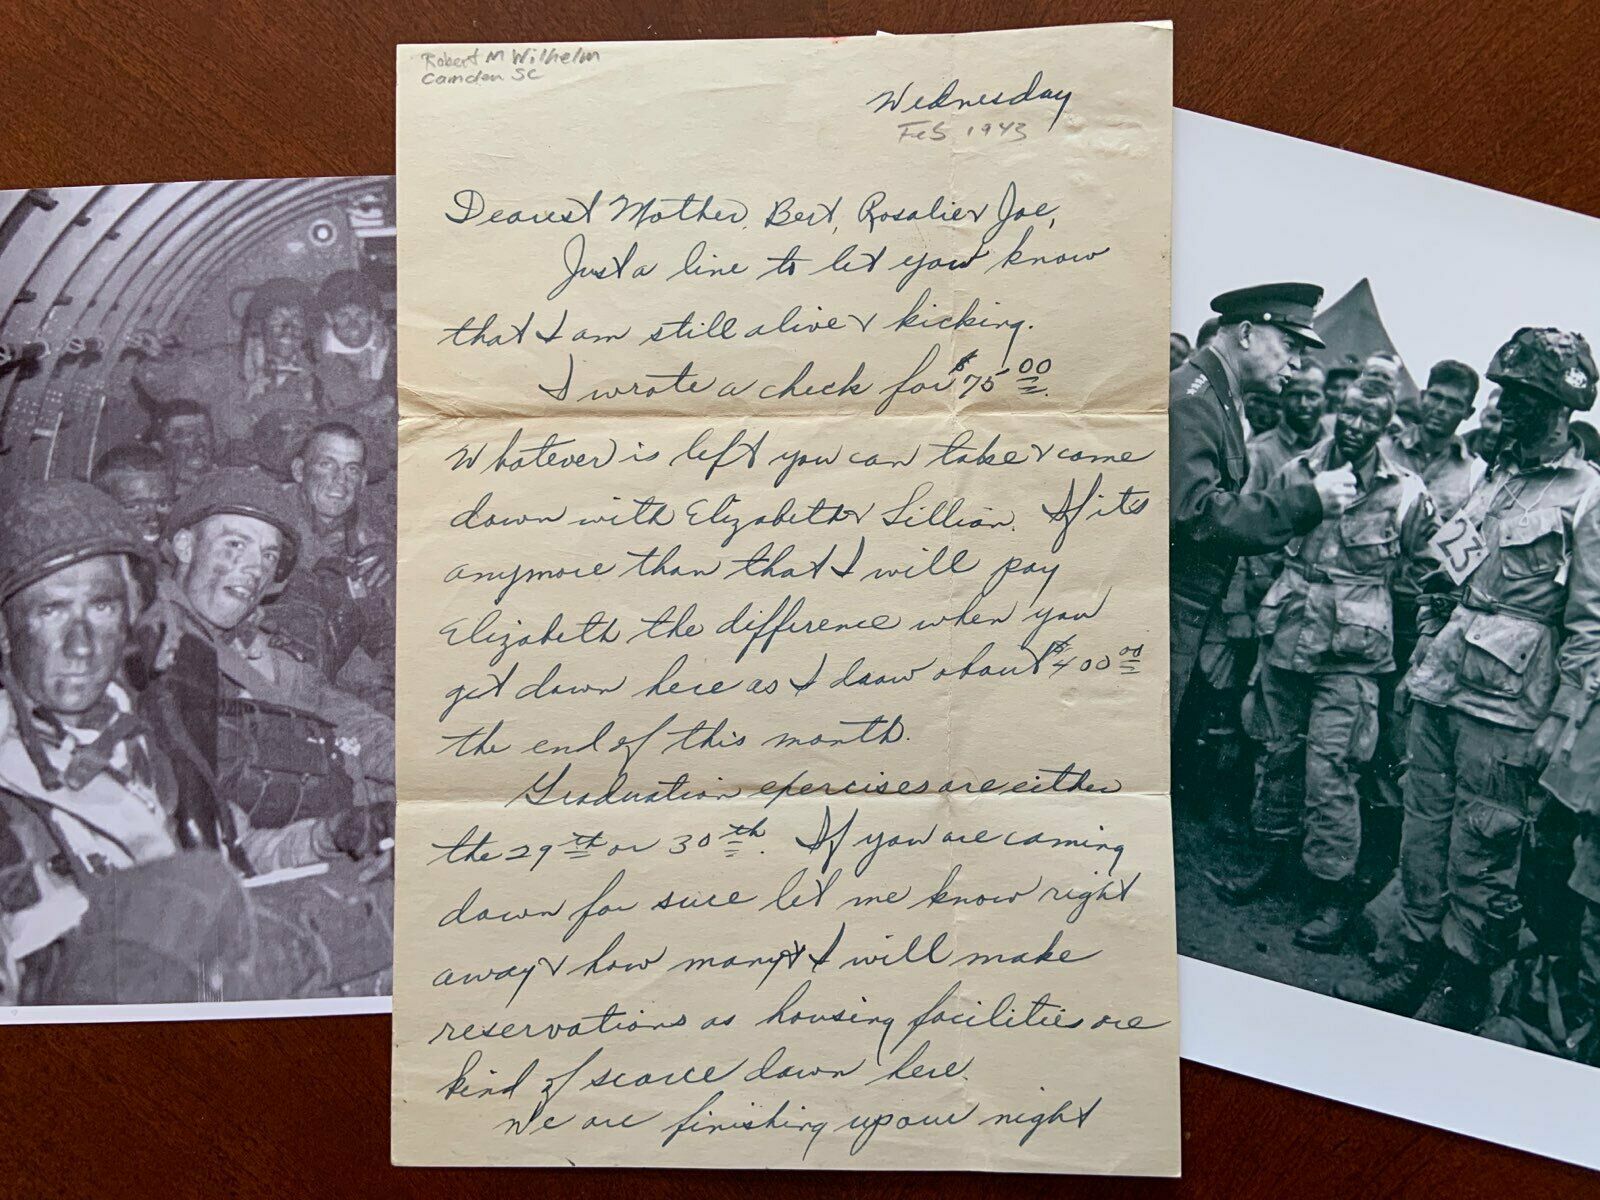 Robert M Wilhelm
Camden SC
Wednesday
Feb 1943
Dearest Mother, Bert, Rosalie & Joe,
Just a line to let you know
that I am still alive & kicking.
I wrote a check for $75.00.
Whatever is left you can take & come
down with Elizabeth & Lillian. If its
anymore than that I will pay
Elizabeth the difference when you
get down here as I draw about $400.00
the end of this month.
Graduation exercises are either
the 29th or 30th. If you are coming
down for sure let me know right
away & how many & I will make
reservations as housing facilities are
kind of scarce down here.
We are finishing up our night
23